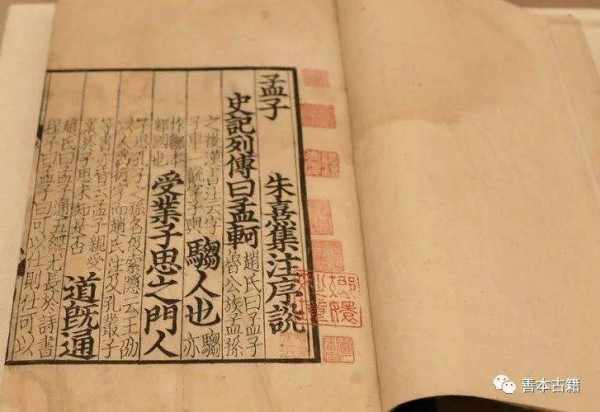 孟子 朱熹集注序説
史記列傳曰孟軻
趙氏曰孟子
魯公族孟孫
之後漢書注云字
子車一説字子輿
騶人也
騶
亦
作鄒本
邾國也
受業子思之門人
子思孔子之孫名伋索隱云王劭
以人為衍字而趙氏注及孔叢子
等書亦皆云孟子親受
業於子思未知是否
道旣通
趙氏曰孟子通五經尤長於詩書
程子曰孟子曰可以仕則仕可以
善本古籍